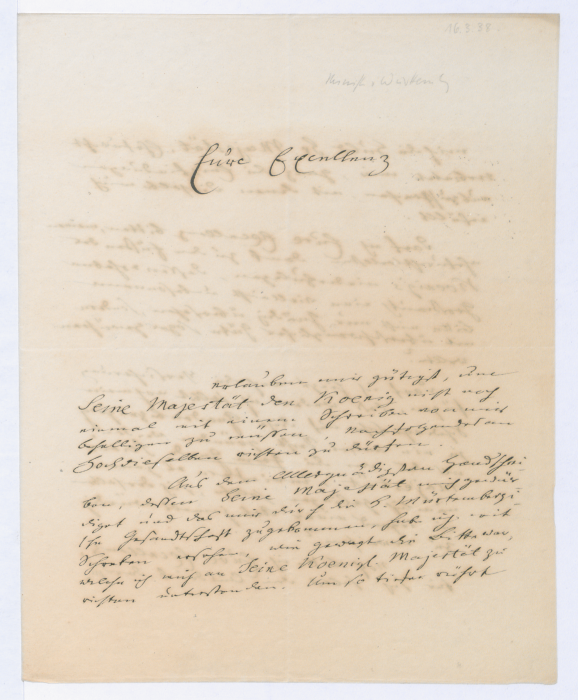 16.3.38.
Eure Excellenz
erlauben mir gütigst, um
Seine Majestät den Koenig nicht noch
einmal mit einem Schreiben von mir
behelligen zu müssen, Nachfolgendes an
Hochdieselben richten zu dürfen.
Aus dem Allergnädigsten Handschrei
ben, dessen Seine Majestät mich gewür
digt und das mir durch die K. Würtembergi
sche Gesandtschaft zugekommen, habe ich mit
Schrecken ersehen, wie gewagt die Bitte war,
welche ich mich an Seine Koenigl. Majestät zu
richten unterstanden. Um so tiefer rührt